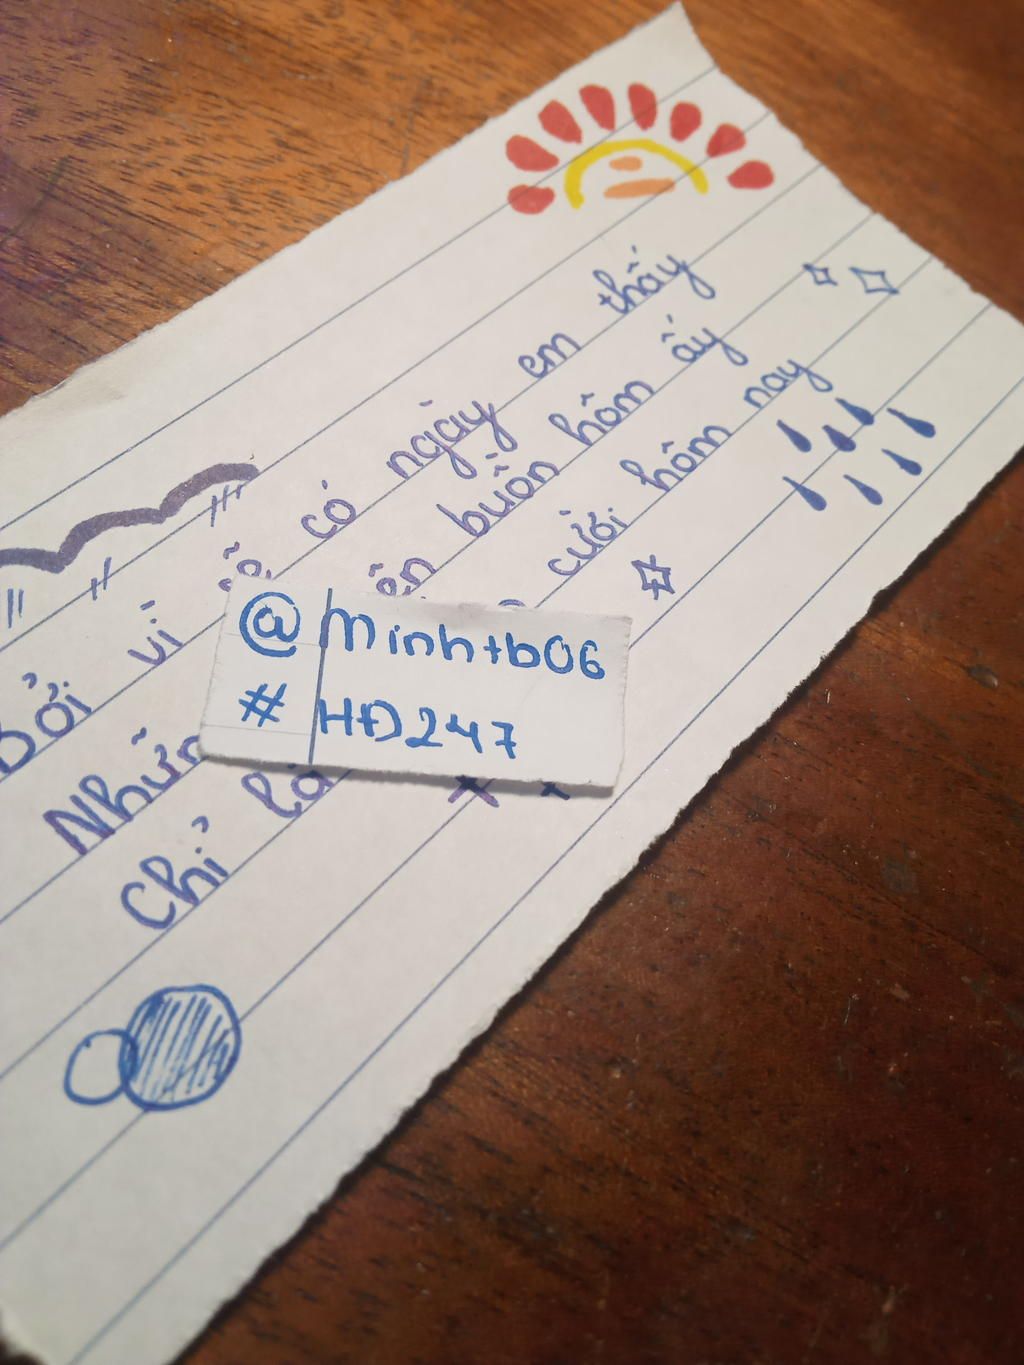 Bởi vì có ngày em thấy
buồn hôm ấy
Chỉ là cười hôm nay
@Minhtb06
#HĐ247